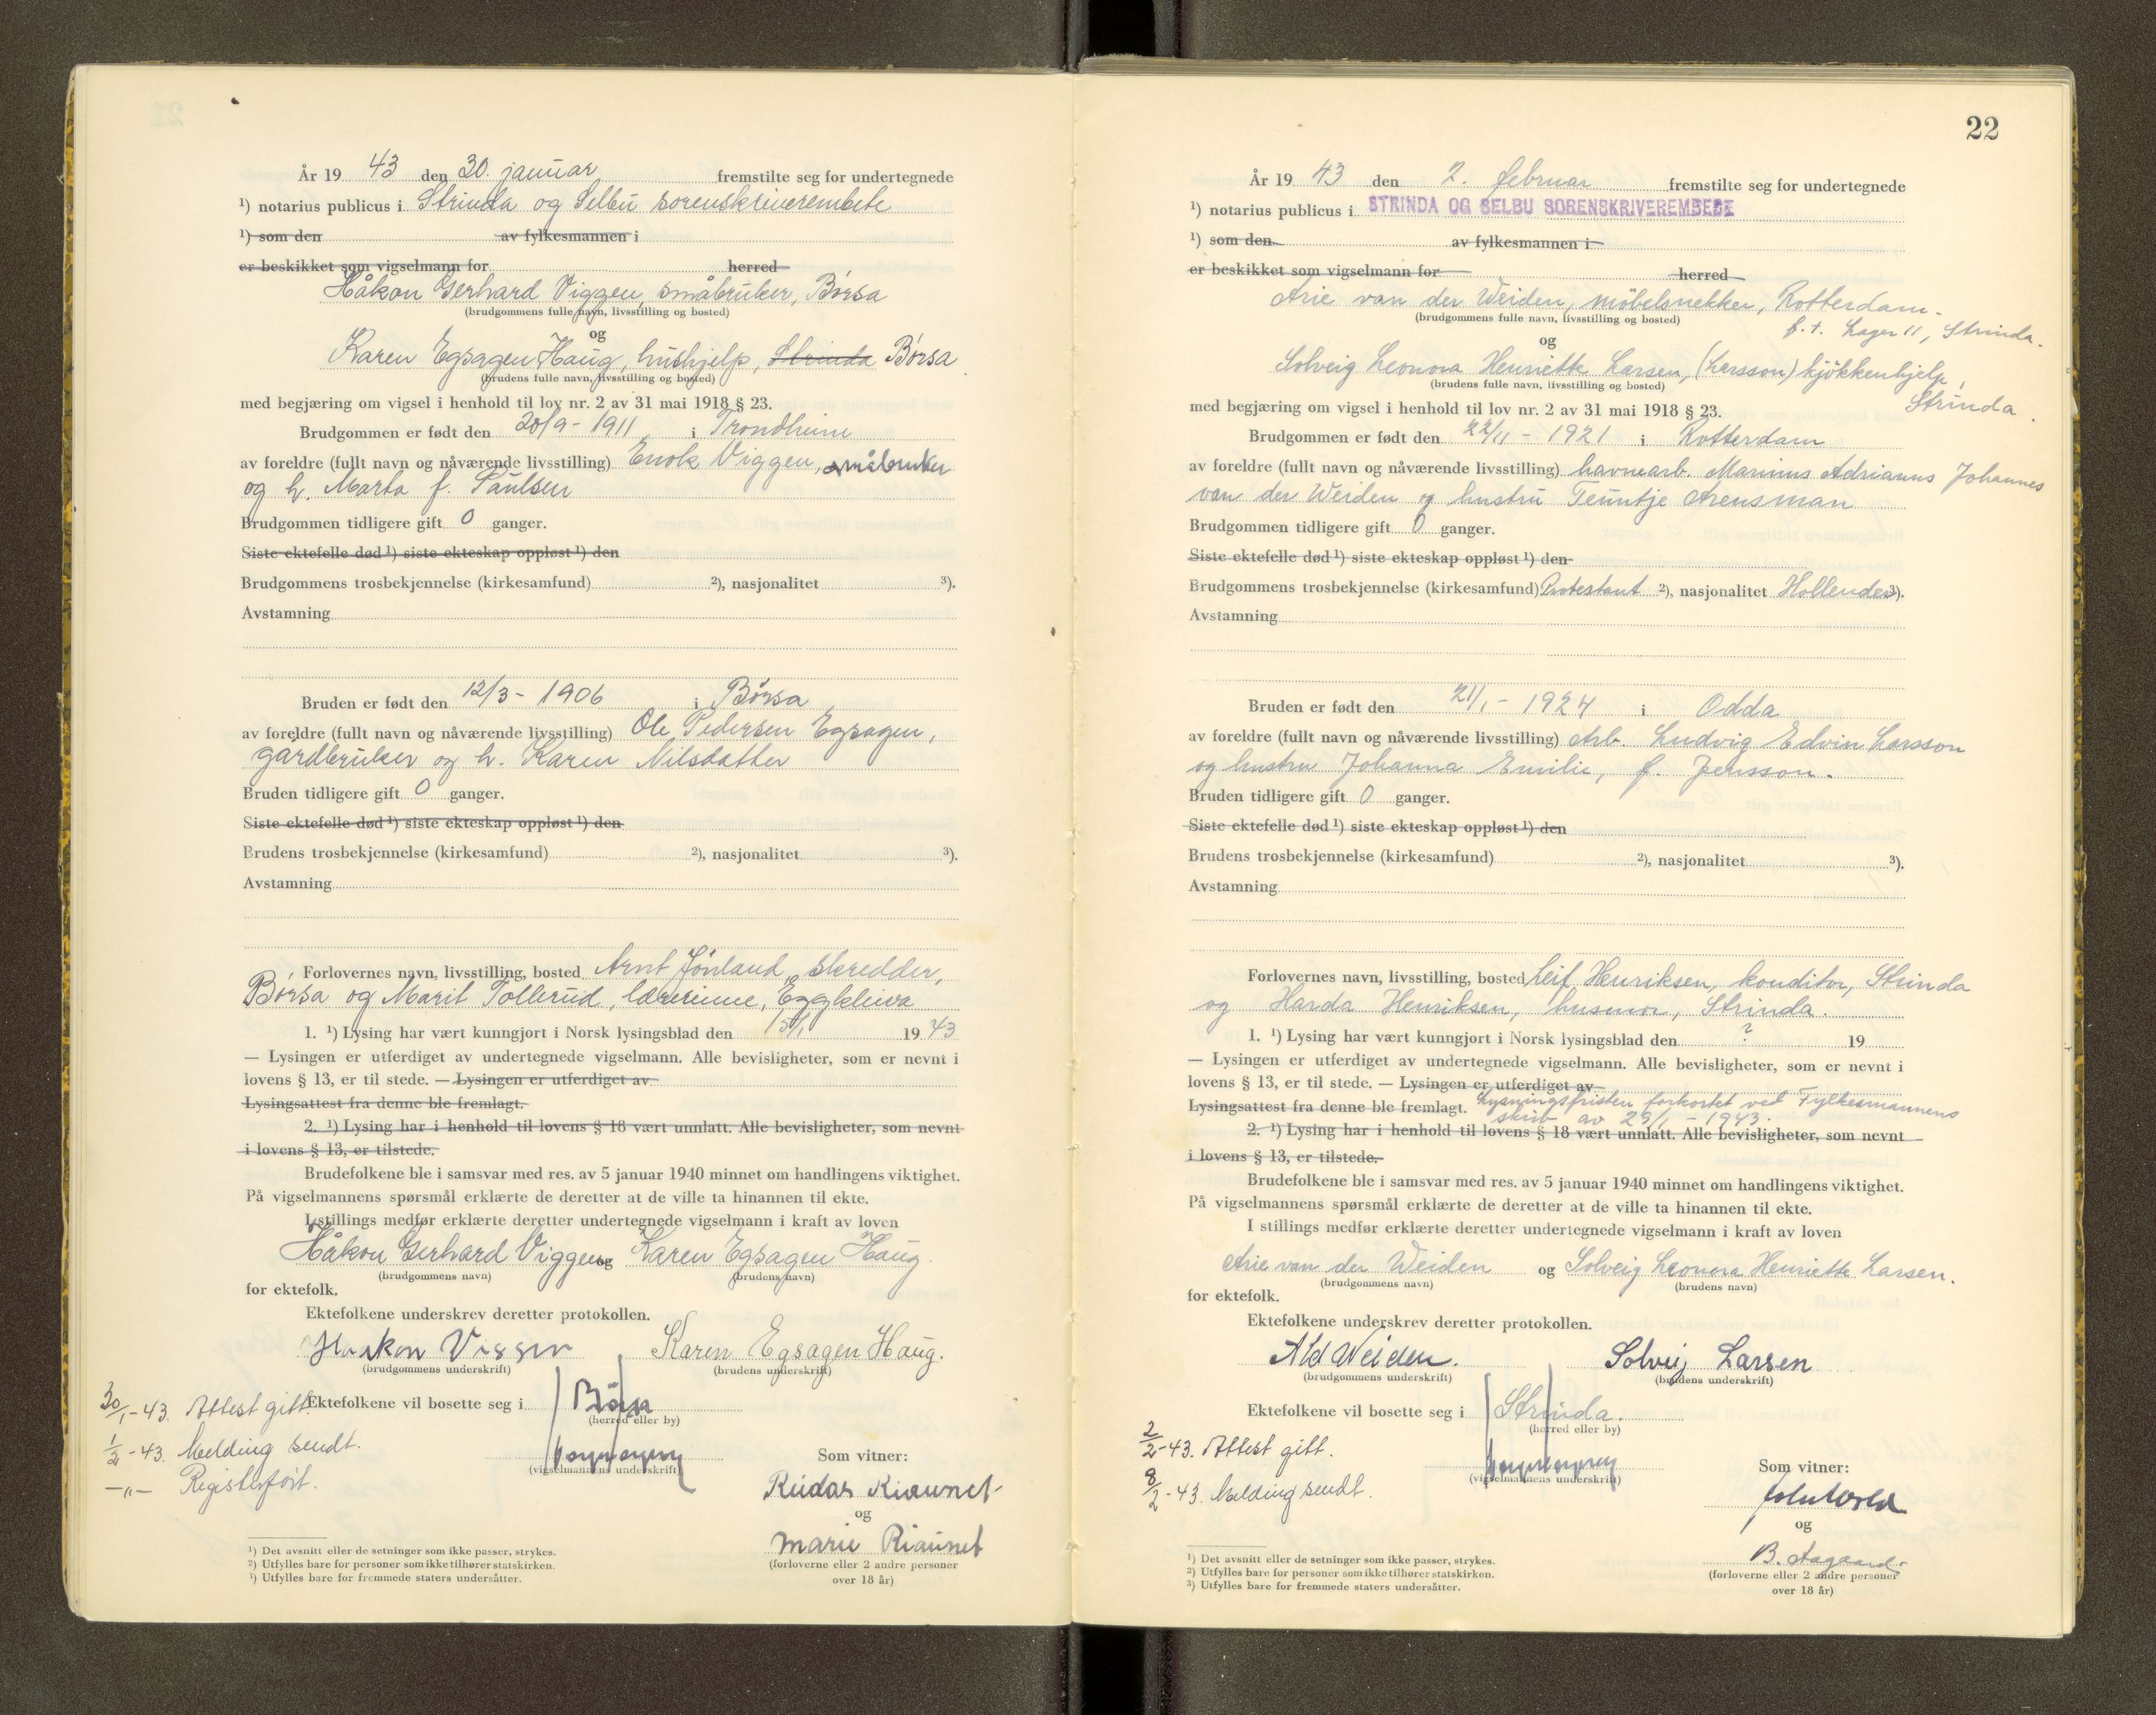 År 19 43 den 30. januar fremstilte seg for undertegnede
¹) notarius publicus i Strinda og Selbu sorenskriverembete
¹) som den av fylkesmannen i
er beskikket som vigselmann for herred
Håkon Gerhard Viggen, småbruker, Børsa
(brudgommens fulle navn, livsstilling og bosted)
og
Karen Egsagen Haug, hushjelp, Strinda Børsa
(brudens fulle navn, livsstilling og bosted)
med begjæring om vigsel i henhold til lov nr. 2 av 31 mai 1918 § 23.
Brudgommen er født den 20/9 - 1911 i Trondheim
av foreldre (fullt navn og nåværende livsstilling) Enok Viggen, småbruker
og h. Marta f. Paulsen
Brudgommen tidligere gift 0 ganger.
Siste ektefelle død ¹) siste ekteskap oppløst ¹) den
Brudgommens trosbekjennelse (kirkesamfund) ²), nasjonalitet ³).
Avstamning
Bruden er født den 12/3 - 1906 i Børsa
av foreldre (fullt navn og nåværende livsstilling) Ole Pedersen Egsagen,
gardbruker og h. Karen Nilsdatter
Bruden tidligere gift 0 ganger.
Siste ektefelle død ¹) siste ekteskap oppløst ¹) den
Brudens trosbekjennelse (kirkesamfund) ²), nasjonalitet ³).
Avstamning
Forlovernes navn, livsstilling, bosted Arnt Jönland, skredder,
Børsa og Marit Tollerud, lærerinne, Eggkleiva
1. ¹) Lysing har vært kunngjort i Norsk lysingsblad den 15/1 19 43
— Lysingen er utferdiget av undertegnede vigselmann. Alle bevisligheter, som er nevnt i
lovens § 13, er til stede. — Lysingen er utferdiget av
Lysingsattest fra denne ble fremlagt.
2. ¹) Lysing har i henhold til lovens § 18 vært unnlatt. Alle bevisligheter, som nevnt
i lovens § 13, er tilstede.
Brudefolkene ble i samsvar med res. av 5 januar 1940 minnet om handlingens viktighet.
På vigselmannens spørsmål erklærte de deretter at de ville ta hinannen til ekte.
I stillings medfør erklærte deretter undertegnede vigselmann i kraft av loven
Håkon Gerhard Viggen og Karen Egsagen Haug
(brudgommens navn) (brudens navn)
for ektefolk.
Ektefolkene underskrev deretter protokollen.
Haakon Viggen Karen Egsagen Haug.
(brudgommens underskrift) (brudens underskrift)
30/1-43. Attest gitt. Ektefolkene vil bosette seg i Börsa
(herred eller by)
1/2-43. Melding sendt.
(vigselmannens underskrift) Som vitner:
—"— Registerført.
Reidar Riaunet
og
Marie Riaunet
(forloverne eller 2 andre personer
over 18 år)
¹) Det avsnitt eller de setninger som ikke passer, strykes.
²) Utfylles bare for personer som ikke tilhører statskirken.
³) Utfylles bare for fremmede staters undersåtter.
22
År 19 43 den 2. februar fremstilte seg for undertegnede
¹) notarius publicus i STRINDA OG SELBU SORENSKRIVEREMBEDE
¹) som den av fylkesmannen i
er beskikket som vigselmann for herred
Arie van der Weiden, möbelsnekker, Rotterdam.
(brudgommens fulle navn, livsstilling og bosted) f. t. Lager 11, Strinda.
og
Solveig Leonora Henriette Larsen, (Larsson) kjökkenhjelp,
(brudens fulle navn, livsstilling og bosted)
Strinda.
med begjæring om vigsel i henhold til lov nr. 2 av 31 mai 1918 § 23.
Brudgommen er født den 22/11 - 1921 i Rotterdam
av foreldre (fullt navn og nåværende livsstilling) havnearb. Marinus Adrianus Johannes
van der Weiden og hustru Teuntje Arensman
Brudgommen tidligere gift 0 ganger.
Siste ektefelle død ¹) siste ekteskap oppløst ¹) den
Brudgommens trosbekjennelse (kirkesamfund) Protestant ²), nasjonalitet Hollender ³).
Avstamning
Bruden er født den 21/1 - 1924 i Odda
av foreldre (fullt navn og nåværende livsstilling) Arb. Ludvig Edvin Larsson
og hustru Johanna Emilie, f. Jensson.
Bruden tidligere gift 0 ganger.
Siste ektefelle død ¹) siste ekteskap oppløst ¹) den
Brudens trosbekjennelse (kirkesamfund) ²), nasjonalitet ³).
Avstamning
Forlovernes navn, livsstilling, bosted Leif Henriksen, konditor, Strinda
og Harda Henriksen, husmor, Strinda.
1. ¹) Lysing har vært kunngjort i Norsk lysingsblad den ? 19
— Lysingen er utferdiget av undertegnede vigselmann. Alle bevisligheter, som er nevnt i
lovens § 13, er til stede. — Lysingen er utferdiget av
Lysingsattest fra denne ble fremlagt. Lysningsfristen forkortet ved Fylkesmannens
skriv av 29/1 - 1943.
2. ¹) Lysing har i henhold til lovens § 18 vært unnlatt. Alle bevisligheter, som nevnt
i lovens § 13, er tilstede.
Brudefolkene ble i samsvar med res. av 5 januar 1940 minnet om handlingens viktighet.
På vigselmannens spørsmål erklærte de deretter at de ville ta hinannen til ekte.
I stillings medfør erklærte deretter undertegnede vigselmann i kraft av loven
Arie van der Weiden og Solveig Leonora Henriette Larsen.
(brudgommens navn) (brudens navn)
for ektefolk.
Ektefolkene underskrev deretter protokollen.
AvdWeiden. Solveig Larsen
(brudgommens underskrift) (brudens underskrift)
Ektefolkene vil bosette seg i Strinda.
(herred eller by)
2/2-43. Attest gitt.
(vigselmannens underskrift) Som vitner:
8/2-43. Melding sendt.
og
B. Aagaard
(forloverne eller 2 andre personer
over 18 år)
¹) Det avsnitt eller de setninger som ikke passer, strykes.
²) Utfylles bare for personer som ikke tilhører statskirken.
³) Utfylles bare for fremmede staters undersåtter.